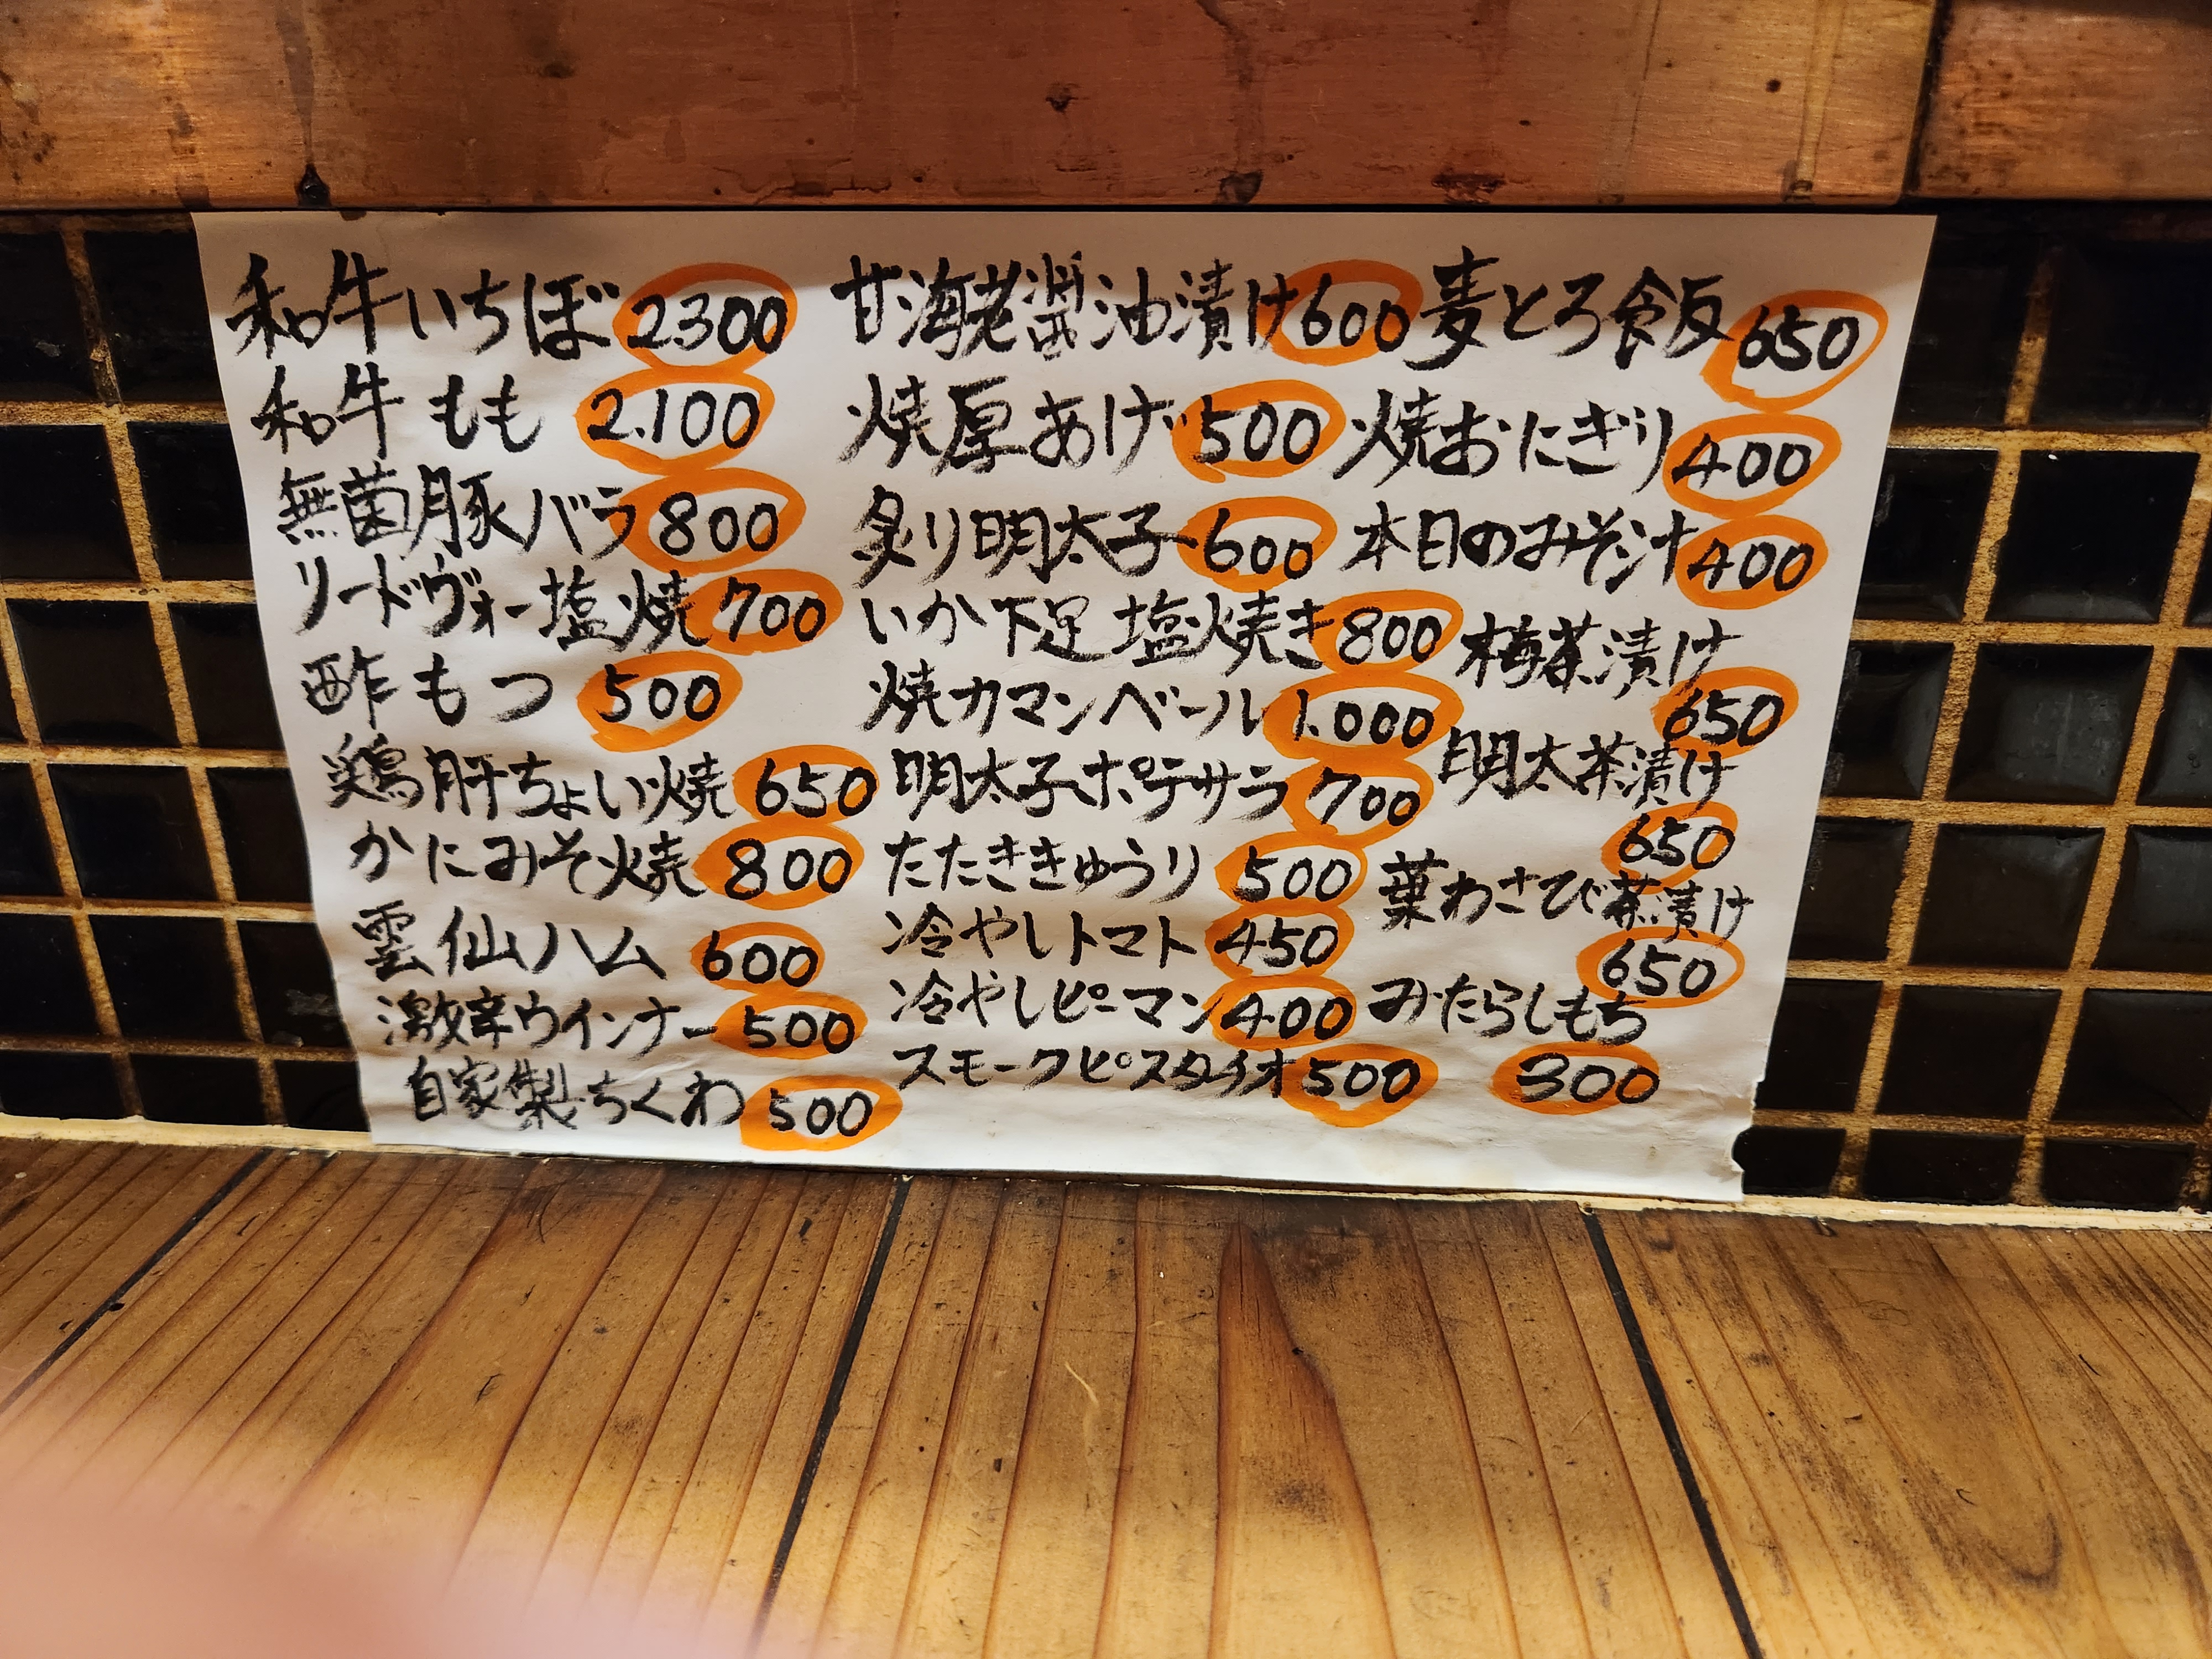 和牛いちぼ 2.300
和牛もも 2.100
無菌豚バラ 800
リードヴォー塩焼 700
酢もつ 500
鶏肝ちょい焼 650
かにみそ焼 800
雲仙ハム 600
激辛ウインナー 500
自家製ちくわ 500
甘海老醤油漬け 600
焼厚あげ 500
炙り明太子 600
いか下足塩焼き 800
焼カマンベール 1.000
明太子ポテサラ 700
たたききゅうり 500
冷やしトマト 450
冷やしピーマン 400
スモークピスタチオ 500
麦とろ飯 650
焼おにぎり 400
本日のみそ汁 400
梅茶漬け
650
明太茶漬け
650
葉わさび茶漬け
650
みたらしもち
300